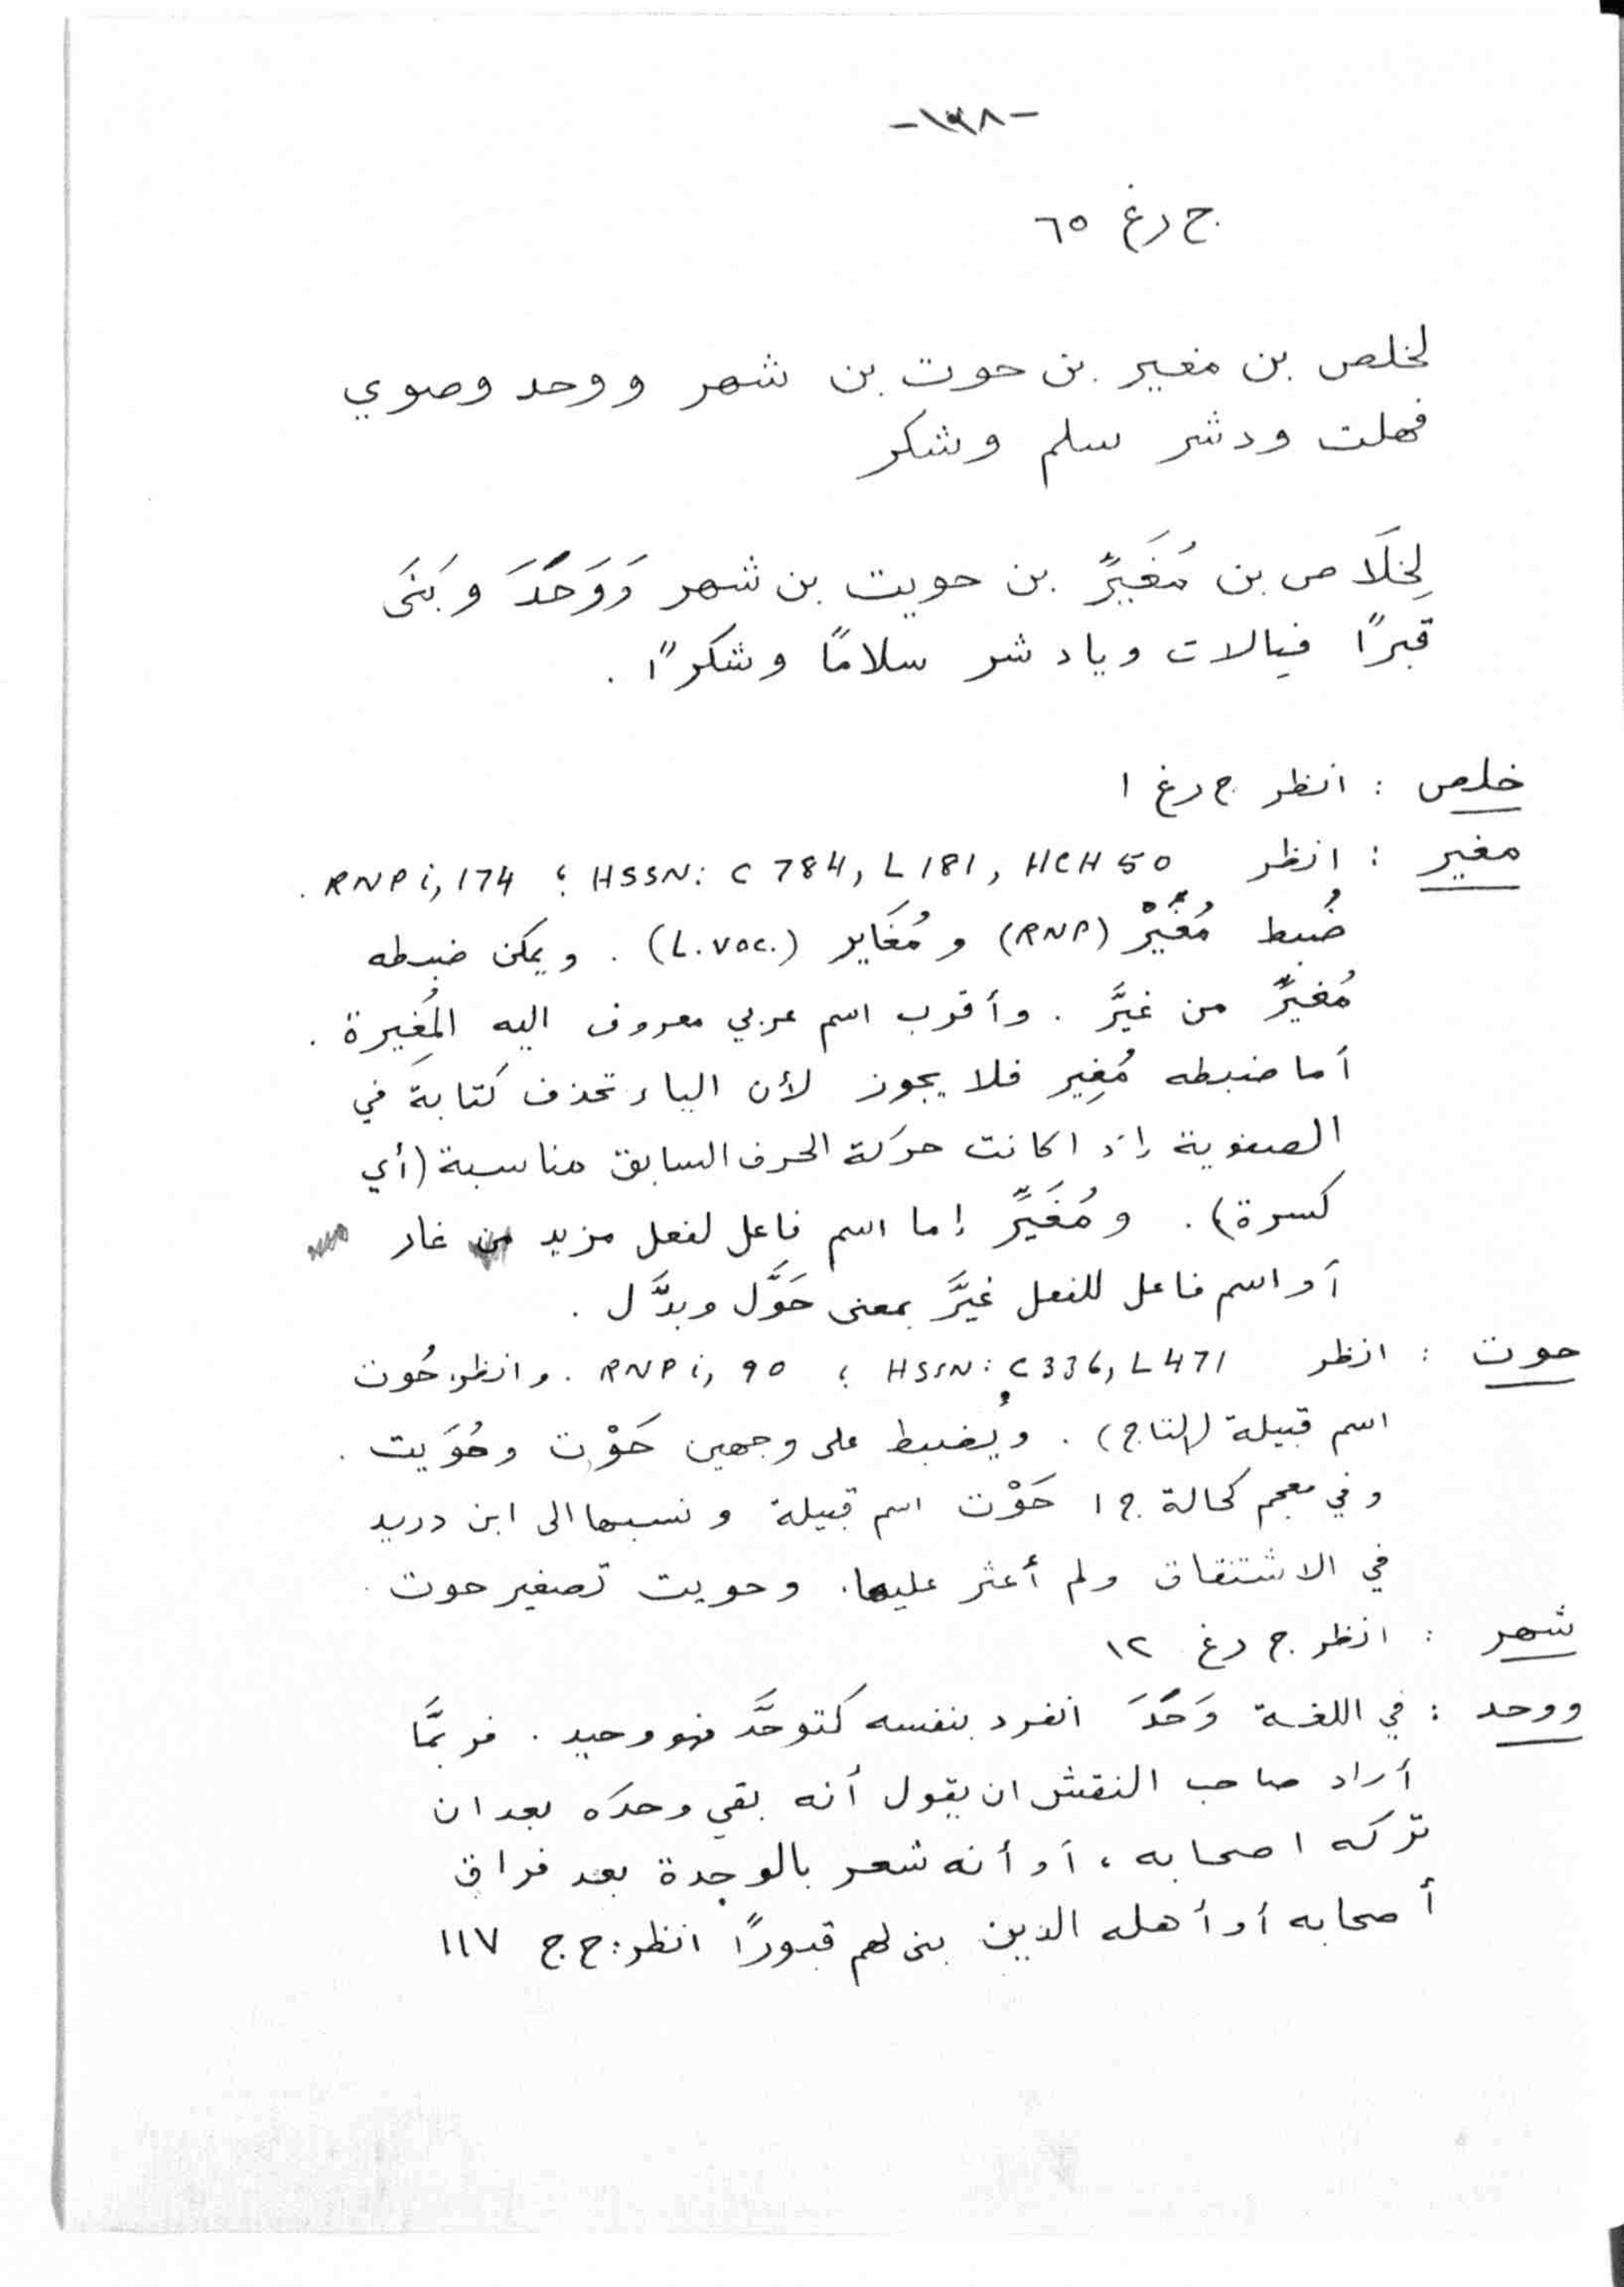 -١٣٨-
ج رغ ٦٥
لخلص بن مغير بن حوت بن شهر ووحد وصوي
فهلت ودشر سلم وشكر
لِخَلَاص بن مُغَيِّر بن حويت بن شهر وَوَحَّدَ وبَنَى
قبرًا فيالات ويادشر سلامًا وشكرًا .
خلص : انظر ج رغ ١
مغير : انظر HSSN: C 784, L 181, HCH 50 ؛ RNP i, 174 .
ضُبط مُغَيْر (RNP) ومُغَاير (L. Voc.) . ويمكن ضبطه
مُغَيِّر من غيَّر . وأقرب اسم عربي معروف اليه المُغِيرة .
أما ضبطه مُغِير فلا يجوز لأن الياء تحذف كتابة في
الصفوية إذا كانت حركة الحرف السابق مناسبة (أي
كسرة) . ومُغَيِّر إما اسم فاعل لفعل مزيد من غار
أو اسم فاعل للفعل غيَّر بمعنى حَوَّل وبدَّل .
حوت : انظر HSSN: C 336, L 471 ؛ RNP i, 90 . وانظر: حُوت
اسم قبيلة (التاج) . ويُضبط على وجهين حَوْت وحُوَيت .
وفي معجم كحالة ج ١ حَوْت اسم قبيلة ونسبها الى ابن دريد
في الاشتقاق ولم أعثر عليها. وحويت تصغير حوت .
شهر : انظر ج رغ ١٢
ووحد : في اللغة وَحَّدَ انفرد بنفسه كتوحَّد فهو وحيد . فربمَّا
أراد صاحب النقش ان يقول أنه بقي وحدَه بعد ان
تركه اصحابه ، أو أنه شعر بالوحدة بعد فراق
أصحابه أو أهله الذين بنى لهم قبورًا انظر: ح ج ١١٧